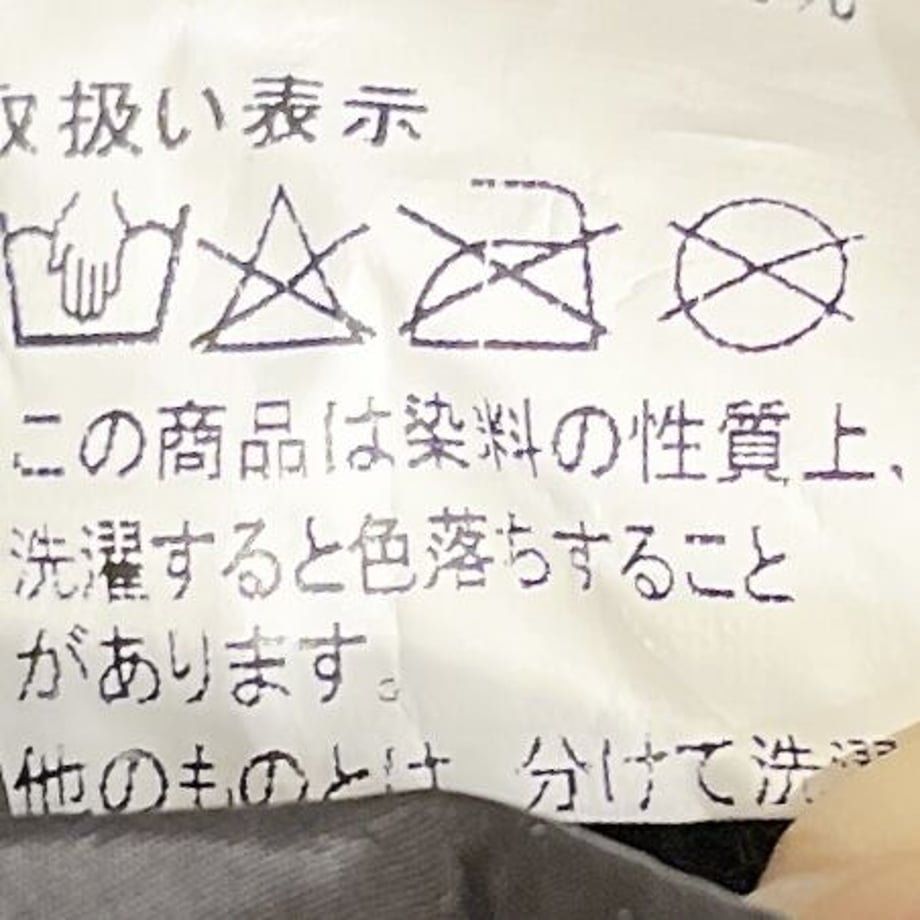 取扱い表示
この商品は染料の性質上、
洗濯すると色落ちすること
があります。
他のものとは 分けて洗濯